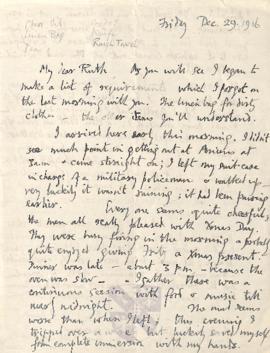 Friday Dec. 29. 1916
Chor
Linen Bag
Rough Towel
My dear Ruth As you will see I began to
make a list of requirements which I forgot on
the last morning with you. The linen bag for dirty
clothes — the other items you'll understand.
I arrived here early this morning. I didn't
see much point in getting out at Amiens at
3 a.m & came straight on; I left my suit-case
in charge of a military policeman & walked up
very luckily it wasn't raining; it had been pouring
earlier.
Every one seems quite cheerful,
The men all really pleased with Xmas Day.
They were busy firing in the morning &
quite enjoyed giving Fritz a Xmas present.
Dinner was late – about 3 p.m – because the
oven was slow – I gather there was a
continuous session with food & music till
near midnight. The mud seems
worse than when I left; this evening I
tripped over a and but luckily saved myself
from complete immersion with my hands.